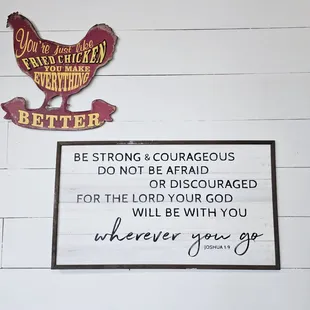 You're just like
FRIED CHICKEN
YOU MAKE
EVERYTHING
BETTER
BE STRONG & COURAGEOUS
DO NOT BE AFRAID
OR DISCOURAGED
FOR THE LORD YOUR GOD
WILL BE WITH YOU
wherever you go
JOSHUA 1:9